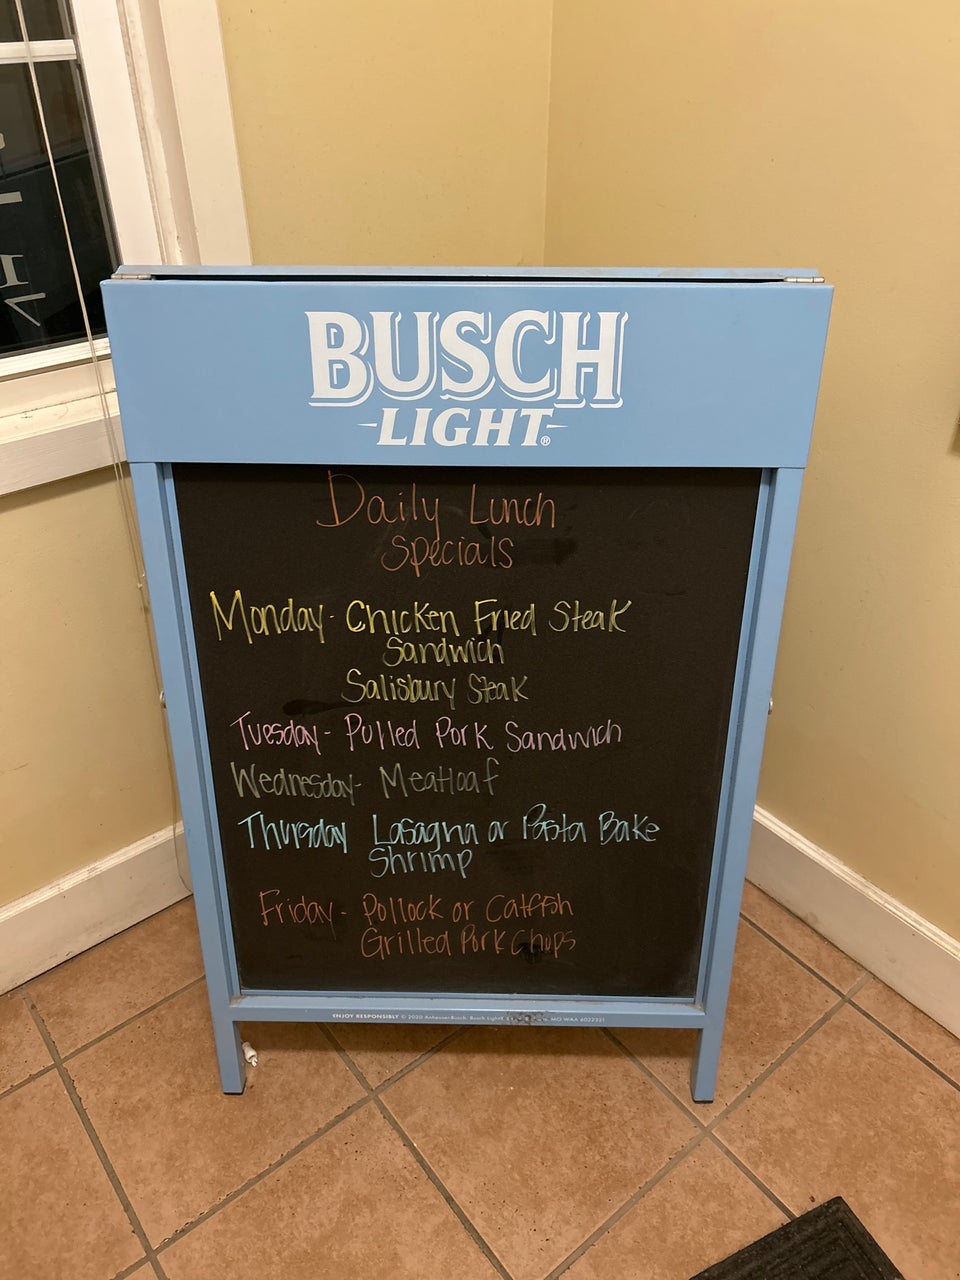 BUSCH
LIGHT®
Daily Lunch
Specials
Monday- Chicken Fried Steak
Sandwich
Salisbury Steak
Tuesday- Pulled Pork Sandwich
Wednesday- Meatloaf
Thursday Lasagna or Pasta Bake
Shrimp
Friday- Pollock or Catfish
Grilled Pork Chops
ENJOY RESPONSIBLY © 2020 Anheuser-Busch, Busch Light®